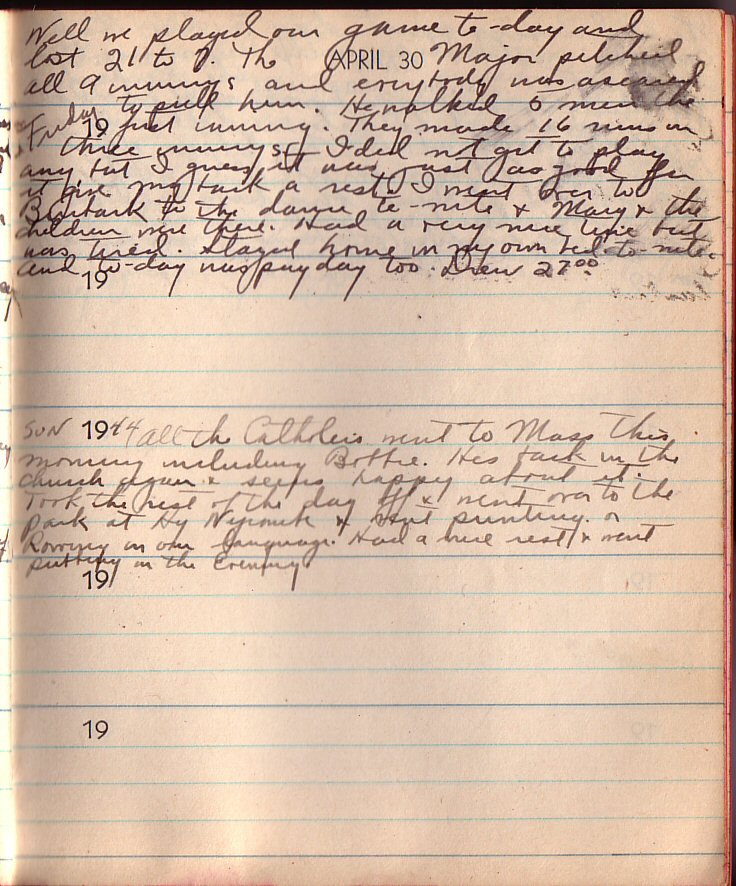 Well we played our game to-day and
lost 21 to 9. The APRIL 30 Major pitched
all 9 innings and everybody was ascared
Friday to pull him. He walked 5 men the
19 first inning. They made 16 runs in
three innings. I did not get to play
any but I guess it was just as good for
it give my back a rest. I went over to
to the dance to-nite & Mary & the
children were there. Had a very nice time but
was tired. Stayed home in my own bed to-nite
and to-day was payday too. Drew 27.00
19
SUN 1944 All the Catholics went to Mass this
morning including Bettie. Hes back in the
church again & seems happy about it.
Took the rest of the day off & went over to the
park at & went punting or
Rowing in our language. Had a nice rest & went
putting in the Evening
19
19